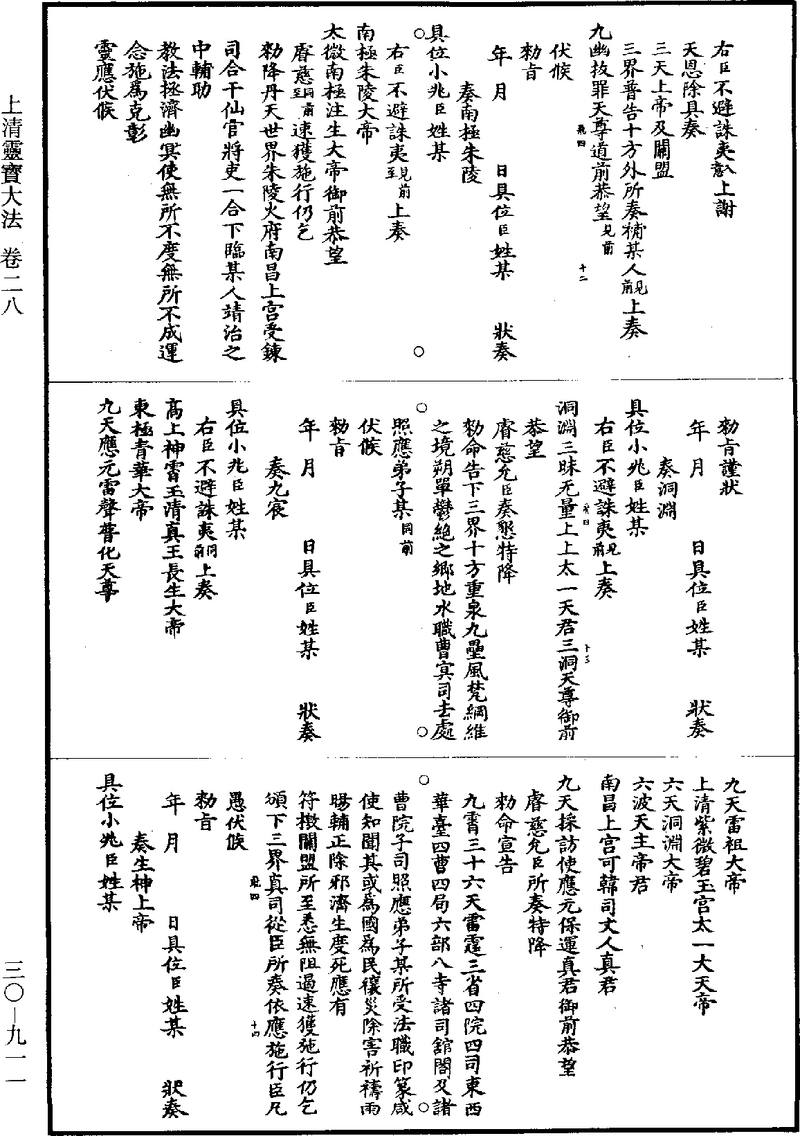 上清靈寶大法　卷二八
三〇—九一一
右臣不避誅夷上謝
天恩除具奏
三天上帝及關盟
三界普告十方外所奏補某人見前上奏
九幽拔罪天尊道前恭望見前
伏候
勑旨
年　月　　日具位臣姓某　狀奏
奏南極朱陵
具位小兆臣姓某
右臣不避誅夷見前至上奏
南極朱陵大帝
太微南極注生大帝御前恭望
睿慈同前至速獲施行仍乞
勑降丹天世界朱陵火府南昌上宮受鍊
司合干仙官將吏一合下臨某人靖治之
中輔助
教法拯濟幽冥使無所不度無所不成運
念施爲克彰
靈應伏候
勑旨謹狀
年　月　　日具位臣姓某　狀奏
奏洞淵
具位小兆臣姓某
右臣不避誅夷見前上奏
洞淵三昧无量上上太一天君三洞天尊御前
恭望
睿慈允臣奏懇特降
勑命告下三界十方重泉九壘風梵綱維
之境朔單鬱絶之鄉地水職曹冥司去處
照應弟子某同前
伏候
勑旨
年　月　　日具位臣姓某　狀奏
奏九宸
具位小兆臣姓某
右臣不避誅夷同前上奏
高上神霄玉清真王長生大帝
東極青華大帝
九天應元雷聲普化天尊
九天雷祖大帝
上清紫微碧玉宮太一大天帝
六天洞淵大帝
六波天主帝君
南昌上宮可韓司丈人真君
九天採訪使應元保運真君御前恭望
睿慈允臣所奏特降
勑命宣告
九霄三十六天雷霆三省四院四司東西
華臺四曹四局六部八寺諸司舘閣及諸
曹院子司照應弟子某所受法職印篆咸
使知聞其或爲國爲民禳災除害祈禱雨
暘輔正除邪濟生度死應有
符檄關盟所至悉無阻遏速獲施行仍乞
頒下三界真司從臣所奏依應施行臣凡
愚伏候
勑旨
年　月　　日具位臣姓某　狀奏
奏生神上帝
具位小兆臣姓某